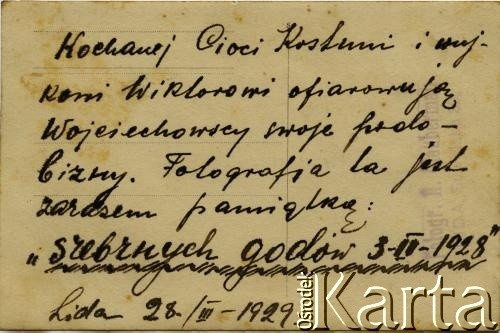 Kochanej Cioci Kostuni i wuj-
kowi Wiktorowi ofiarowują
Wojciechowscy swoje podo-
bizny. Fotografja ta jest
zarazem pamiątką:
„srebrnych godów 3-III-1928"
Lida 28./III-1929
Ośrodek
Karta